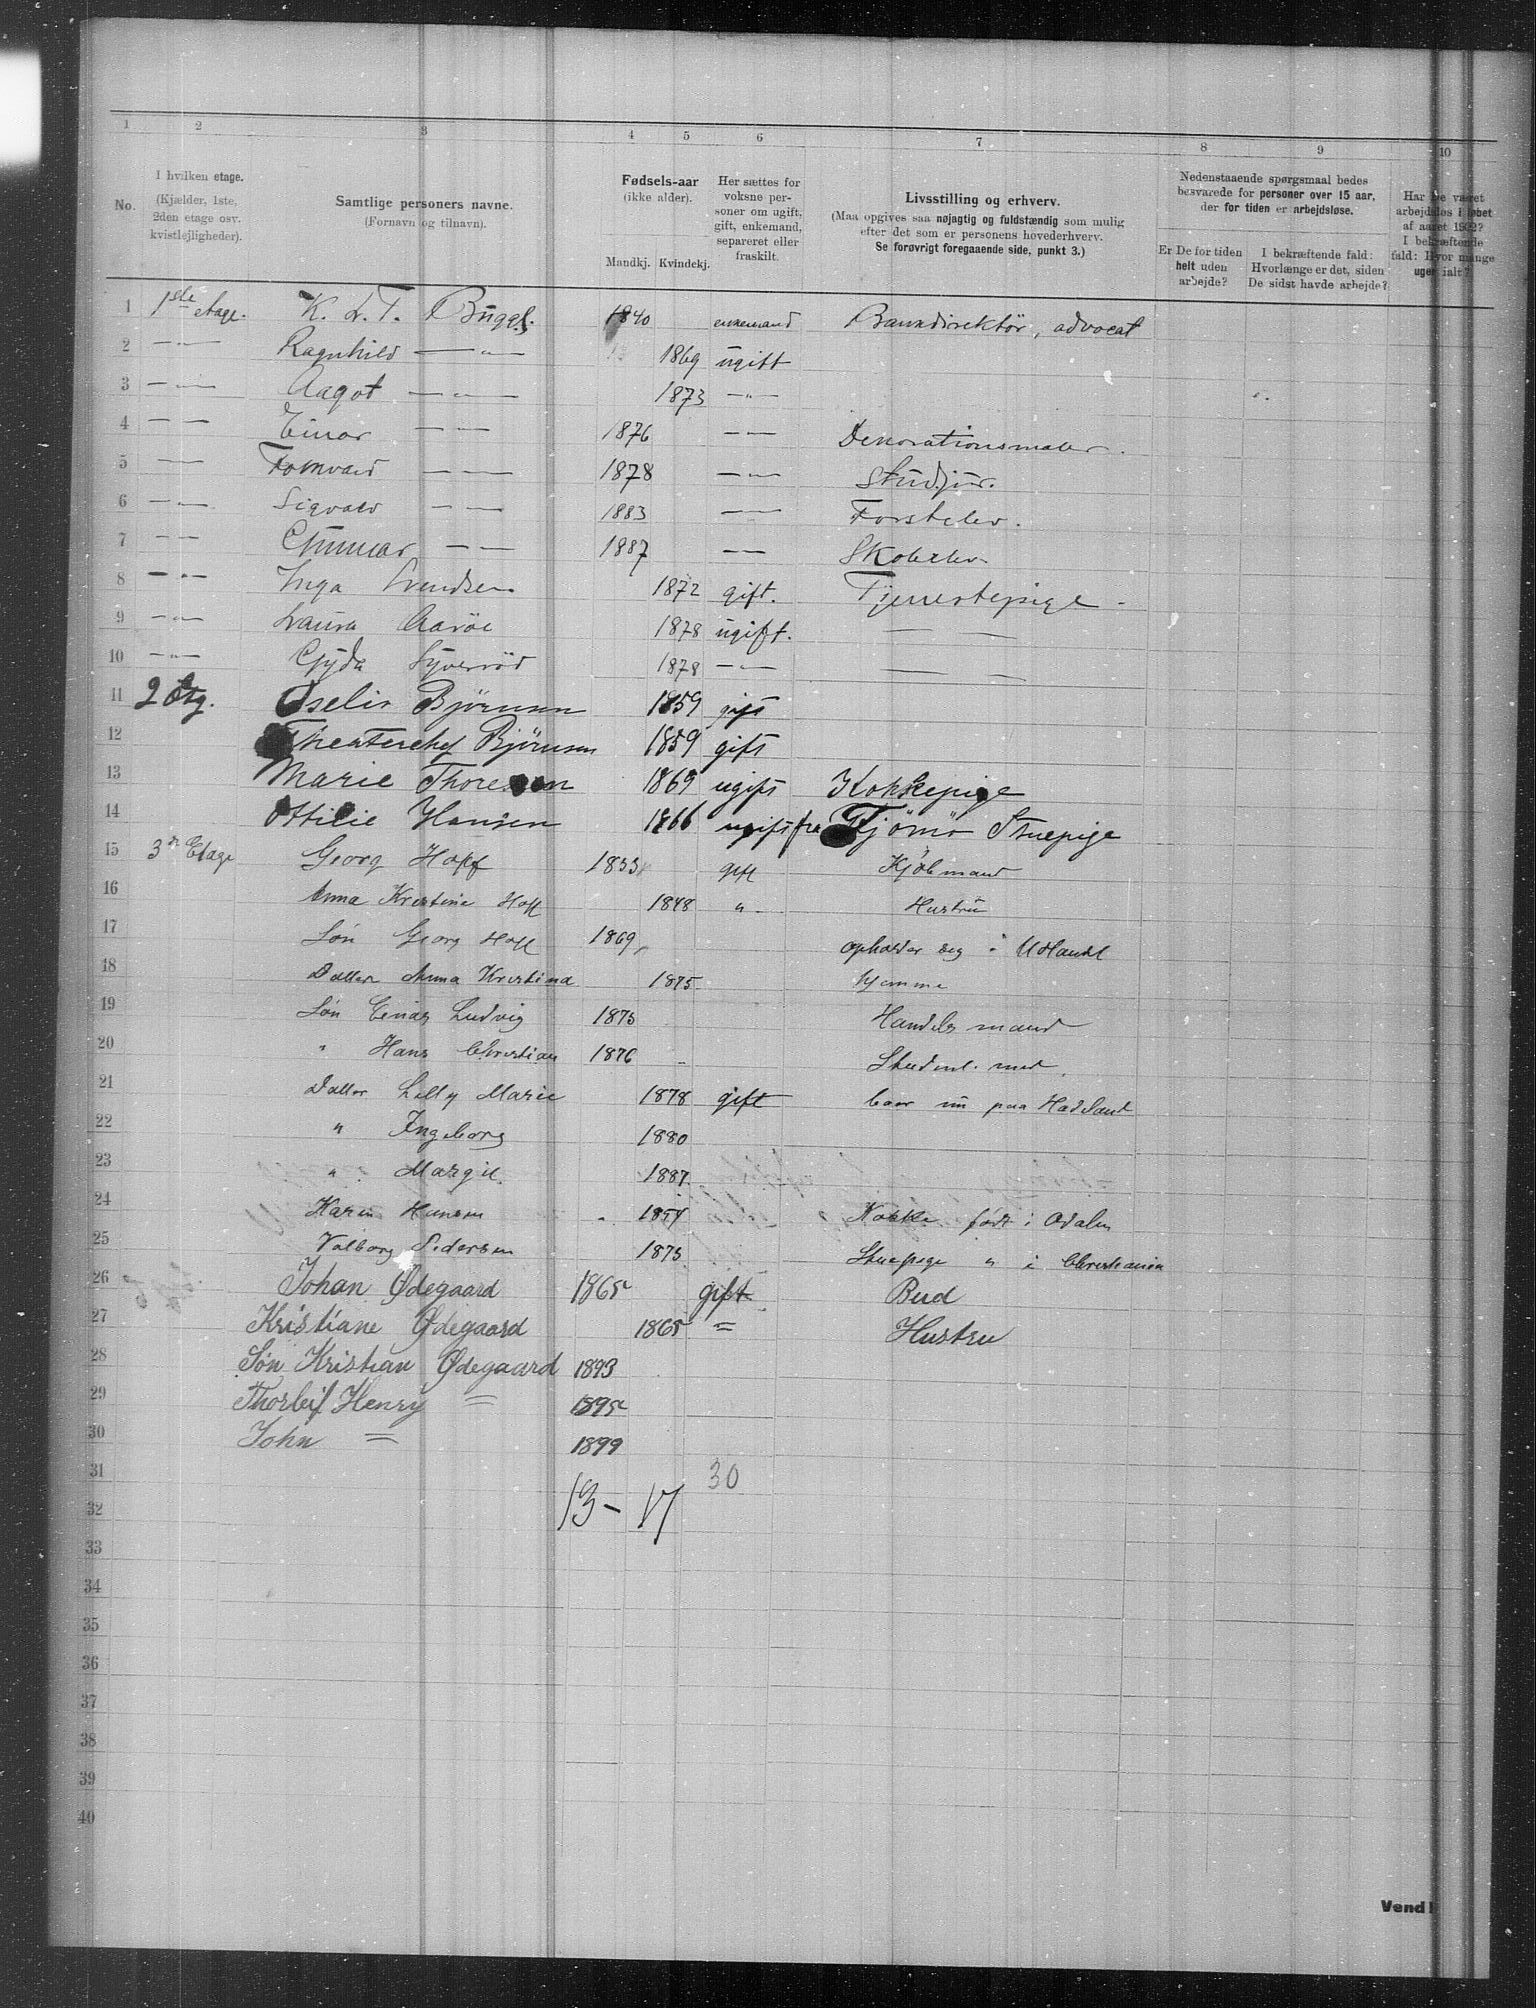 1 2 3 4 5 6 7 8 9 10
No.
I hvilken etage.
(Kjælder, 1ste,
2den etage osv.
kvistlejligheder).
Samtlige personers navne.
(Fornavn og tilnavn).
Fødsels-aar
(ikke alder).
Mandkj. Kvindekj.
Her sættes for
voksne per-
soner om ugift,
gift, enkemand,
separeret eller
fraskilt.
Livsstilling og erhverv.
(Maa opgives saa nøjagtig og fuldstændig som mulig
efter det som er personens hovederhverv.
Se forøvrigt foregaaende side, punkt 3.)
Nedenstaaende spørgsmaal bedes
besvarede for personer over 15 aar,
der for tiden er arbejdsløse.
Er De for tiden
helt uden
arbejde?
I bekræftende fald:
Hvorlænge er det, siden
De sidst havde arbejde?
Har De været
arbejdsløs i løbet
af aaret 1902?
I bekræftende
fald: Hvor mange
uger ialt?
1 1ste etage. K. L. T. Bugge. 1840 enkemand Bankdirektör, advocat
2 — " — Ragnhild — " — 1869 ugift
3 — " — Aagot — " — 1873 — " —
4 — — Einar — — 1876 — — Dekorationsmaler.
5 — — Tomvald — — 1878 — — Stud jur.
6 — " — Sigvald — — 1883 — — Forstelev.
7 — — Gunnar — — 1887 — — Skoleelev
8 — " — Inga Svendsen 1872 gift. Tjenestepige.
9 — " — Laura Aaröe 1878 ugift. — —
10 — " — Gyda Syverröd 1878 — " — — —
11 2 Etg. Oselio Björnson 1859 gift
12 Theaterchef Bjørnson 1859 gift
13 Marie Thoresen 1869 ugift Kokkepige
14 Ottilie Hansen 1866 ugift fra Tjömö Stuepige
15 3die Etage Georg Hopf 1833 gift Kjöbmand
16 Anna Kristine Hopf 1848 " Hustrü
17 Sön Georg Hopf 1869 opholder seg i Udlandet
18 Datter Anna Kristina 1875 hjemme
19 Sön Einar Ludvig 1875 Handelsmand
20 " Hans Christian 1876 Student. med.
21 Datter Lilly Marie 1878 gift boer nu paa Hadeland
22 " Ingeborg 1880
23 " Margit. 1887
24 Karin Hansen 1857 Kokke født i Odalen
25 Valborg Pedersen 1875 Stuepige " i Christiania
26 Johan Ødegaard 1865 gift Bud
27 Kristiane Ødegaard 1865 = Hustru
28 Søn Kristian Ødegaard 1893
29 Thorleif Henry = 1895
30 John = 1899
31 30
32 13 – 17
33
34
35
36
37
38
39
40
Vend